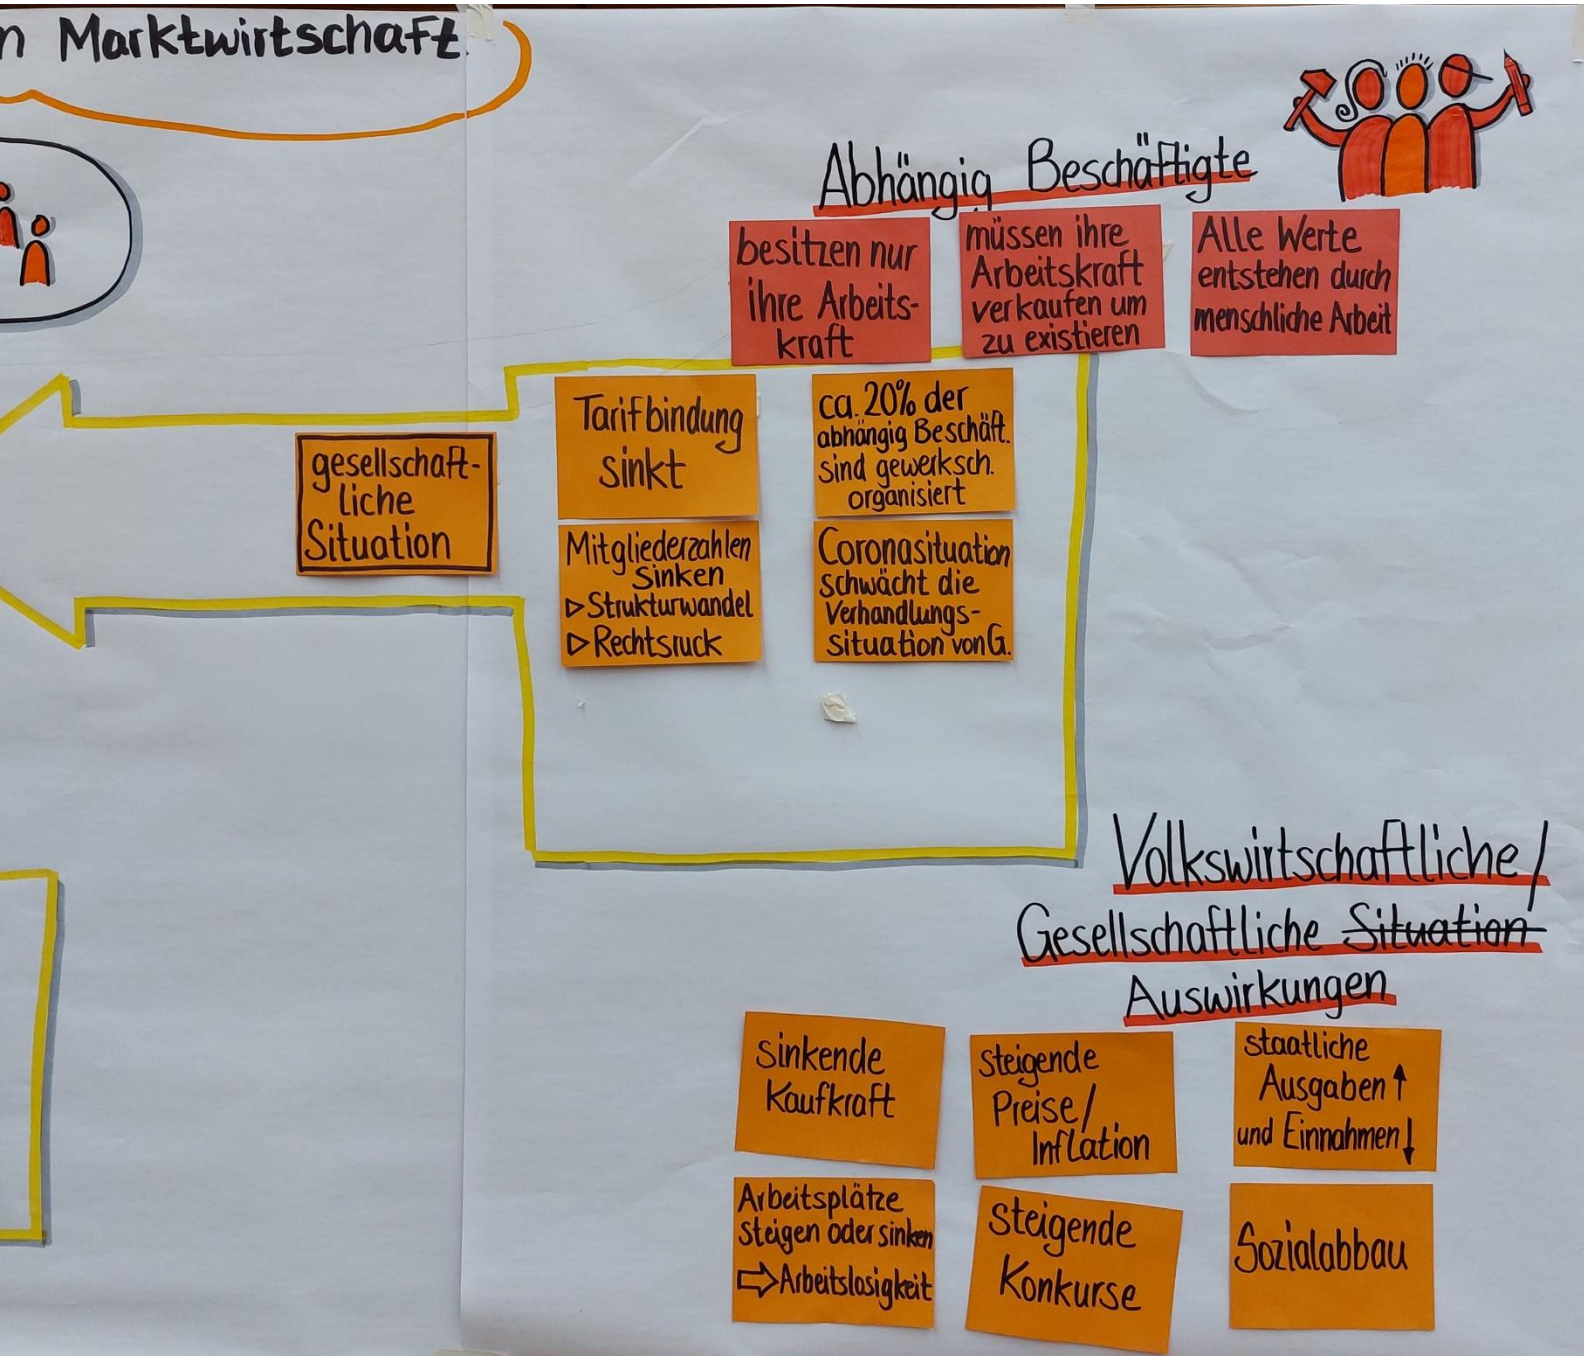 n Marktwirtschaft
Abhängig Beschäftigte
besitzen nur
ihre Arbeits-
kraft
müssen ihre
Arbeitskraft
verkaufen um
zu existieren
Alle Werte
entstehen durch
menschliche Arbeit
gesellschaft-
liche
Situation
Tarifbindung
sinkt
ca. 20% der
abhängig Beschäft.
sind gewerksch.
organisiert
Mitgliederzahlen
sinken
▷ Strukturwandel
▷ Rechtsruck
Coronasituation
schwächt die
Verhandlungs-
situation von G.
Volkswirtschaftliche/
Gesellschaftliche Situation
Auswirkungen
sinkende
Kaufkraft
steigende
Preise/
Inflation
staatliche
Ausgaben ↑
und Einnahmen ↓
Arbeitsplätze
steigen oder sinken
⇨ Arbeitslosigkeit
steigende
Konkurse
Sozialabbau